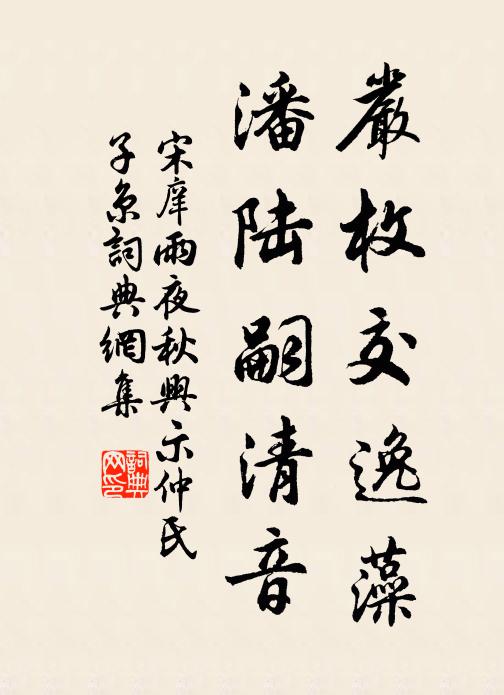 嚴枚交逸藻
潘陆嗣清音
宋庠雨夜秋興示仲氏
子京詞典網集
詞典網印